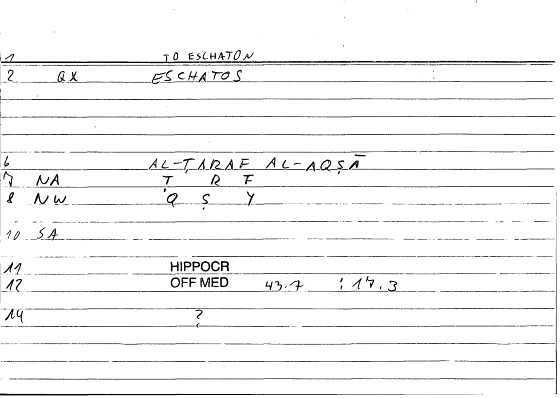 1 TO ESCHATON
2 QX ESCHATOS
6 AL-ṬARAF AL-AQṢĀ
7 NA Ṭ R F
8 NW Q Ṣ Y
10 SA
11 HIPPOCR
12 OFF MED 43.7 : 17.3
14 ?